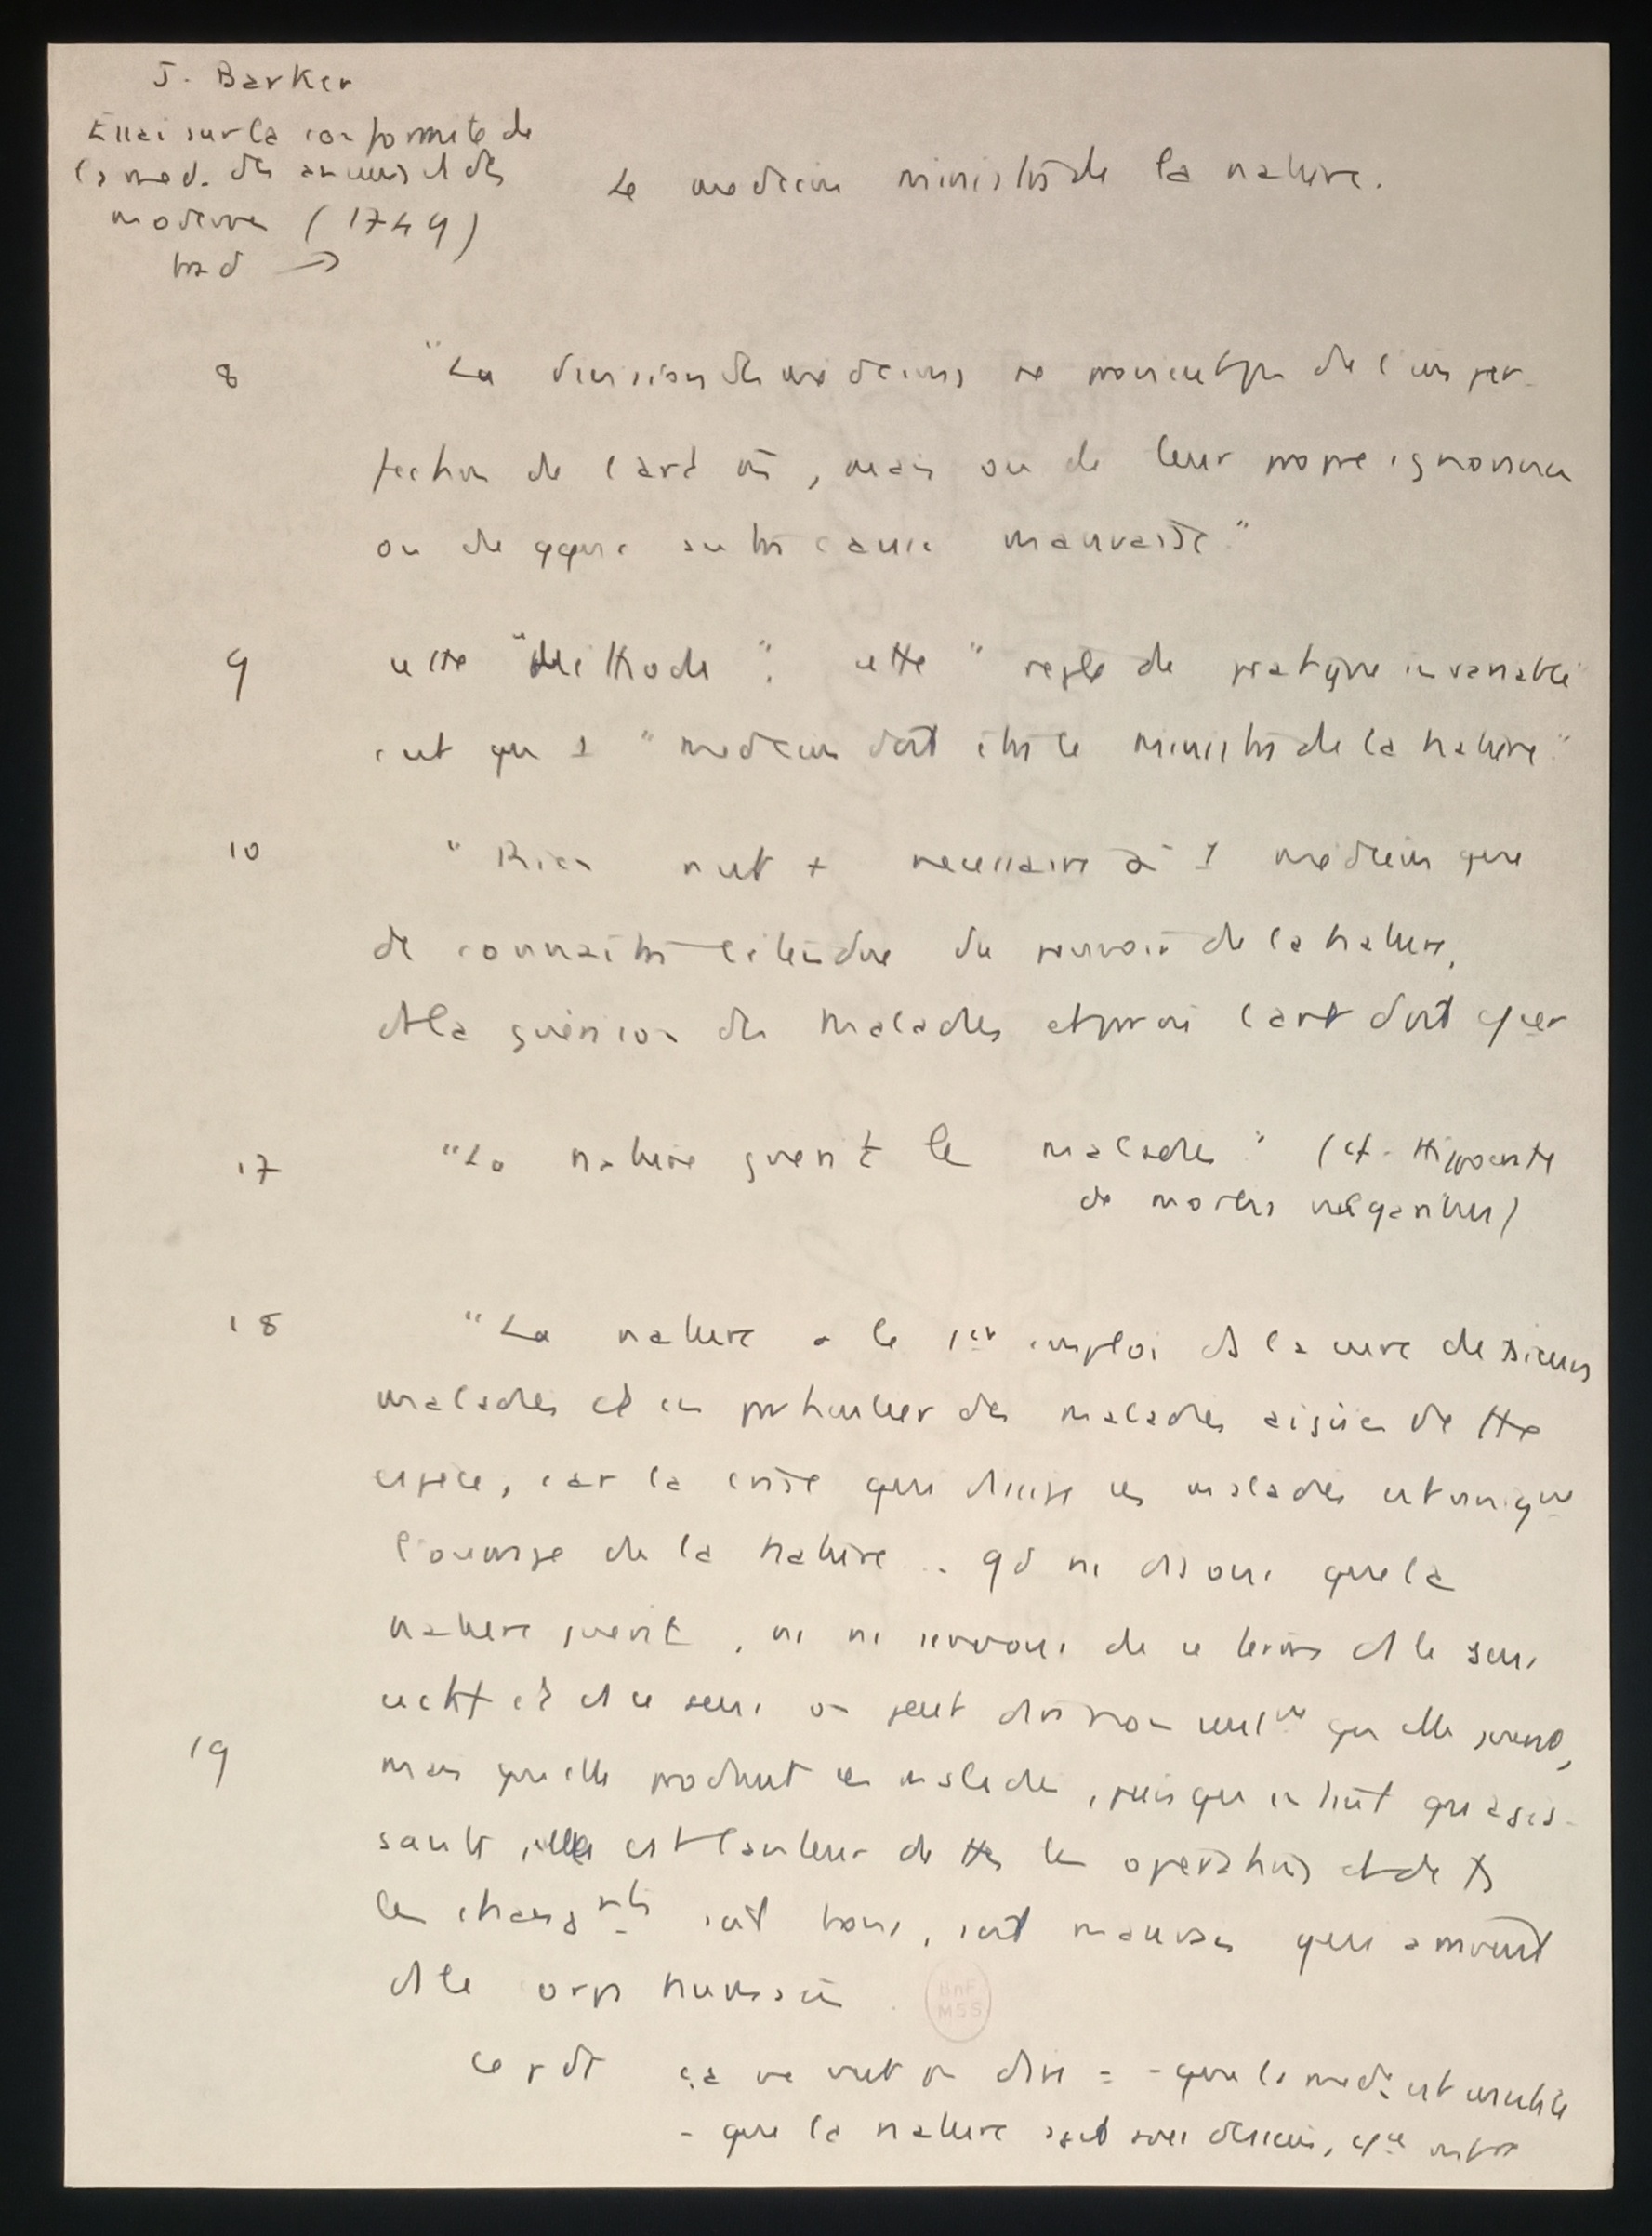 J. Barker
Essai sur la conformité de
la med. des anciens et des
modernes (1749)
trad →
Le medecin ministre de la nature.
8
"La division des medecins ne provient pas de l'imper-
fection de l'art m, mais ou de leur propre ignorance
ou de qque autre cause mauvaise"
9
cette "Methode", cette "regle de pratique invariable"
c'est que 1 "medecin doit être le ministre de la nature"
10
"Rien n'est + necessaire à 1 medecin que
de connaitre l'etendue du pouvoir de la nature,
ds la guerison des maladies et pourquoi l'art doit
17
"La nature guerit les maladies" (cf. Hippocrate
de morbis vulgaribus)
18
"La nature a le 1er emploi ds la cure de plsieurs
maladies et en particulier des maladies aigües de tte
espece, car la crise qui decide ces maladies est uniqu
l'ouvrage de la nature .. qd ns disons que la
nature guerit, ns ns servons de ce terme ds le sens
et ds ce sens on peut dire non seulmt qu'elle guerit,
19
mais qu'elle produit les maladies, puisque en tant qu'agis-
sante, elle est l'auteur de ttes les operations et de ts
les changmts soit bons, soit mauvais qui arrivent
ds le corps humain.
Cepdt ça ne veut pas dire = - que la med. est inutile
- que la nature agit avec dessein,
BnF
MSS